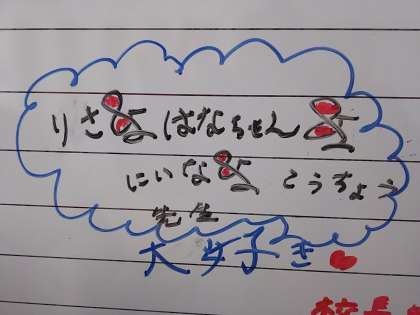 りさ はなちゃん
にいな こうちょう
先生
大好き
校長